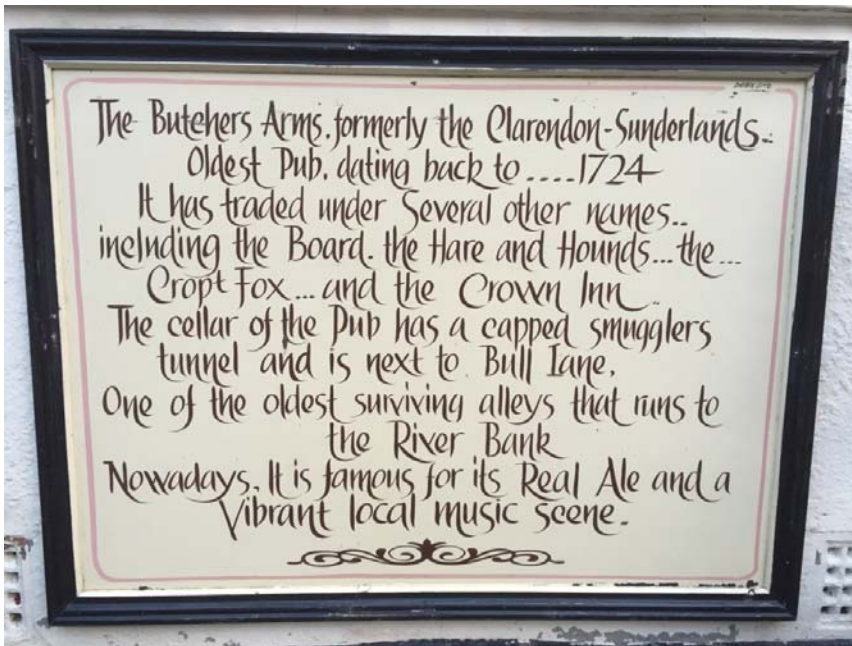 The Butchers Arms. formerly the Clarendon-Sunderlands..
Oldest Pub. dating back to ....1724
It has traded under Several other names..
including the Board. the Hare and Hounds...the...
Cropt Fox...and the Crown Inn..
The cellar of the Pub has a capped smugglers
tunnel and is next to Bull Lane,
One of the oldest surviving alleys that runs to
the River Bank
Nowadays. It is famous for its Real Ale and a
Vibrant local music scene.